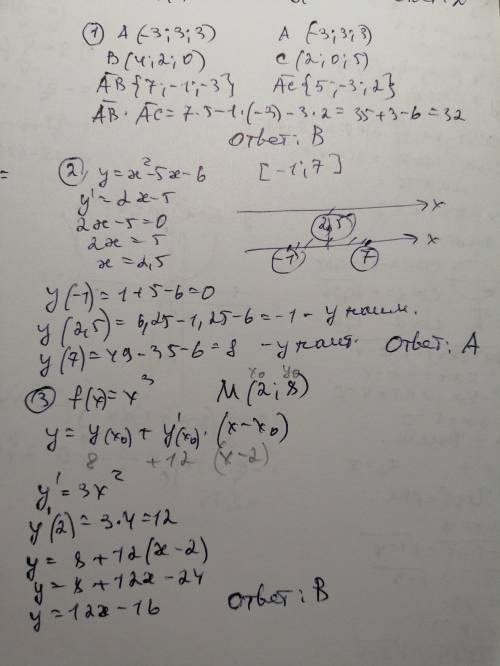 ① A(-3; 3; 3) A(-3; 3; 3)
B(4; 2; 0) C(2; 0; 5)
AB{7; -1; -3} AC{5; -3; 2}
AB · AC = 7·5-1·(-3)-3·2=35+3-6=32
Ответ: В
② y=x²-5x-6 [-1; 7]
y'=2x-5
2x-5=0 x
2x=5 2,5 x
x=2,5 -1 7
y(-1)=1+5-6=0
y(2,5)=6,25-1,25-6=-1 - y наим.
y(7)=49-35-6=8 - y наиб. Ответ: А
③ f(x)=x³ M(2; 8) x₀ y₀
y=y(x₀)+y'(x₀)·(x-x₀)
8 +12 (x-2)
y'=3x²
y'(2)=3·4=12
y=8+12(x-2)
y=8+12x-24
y=12x-16 Ответ: В